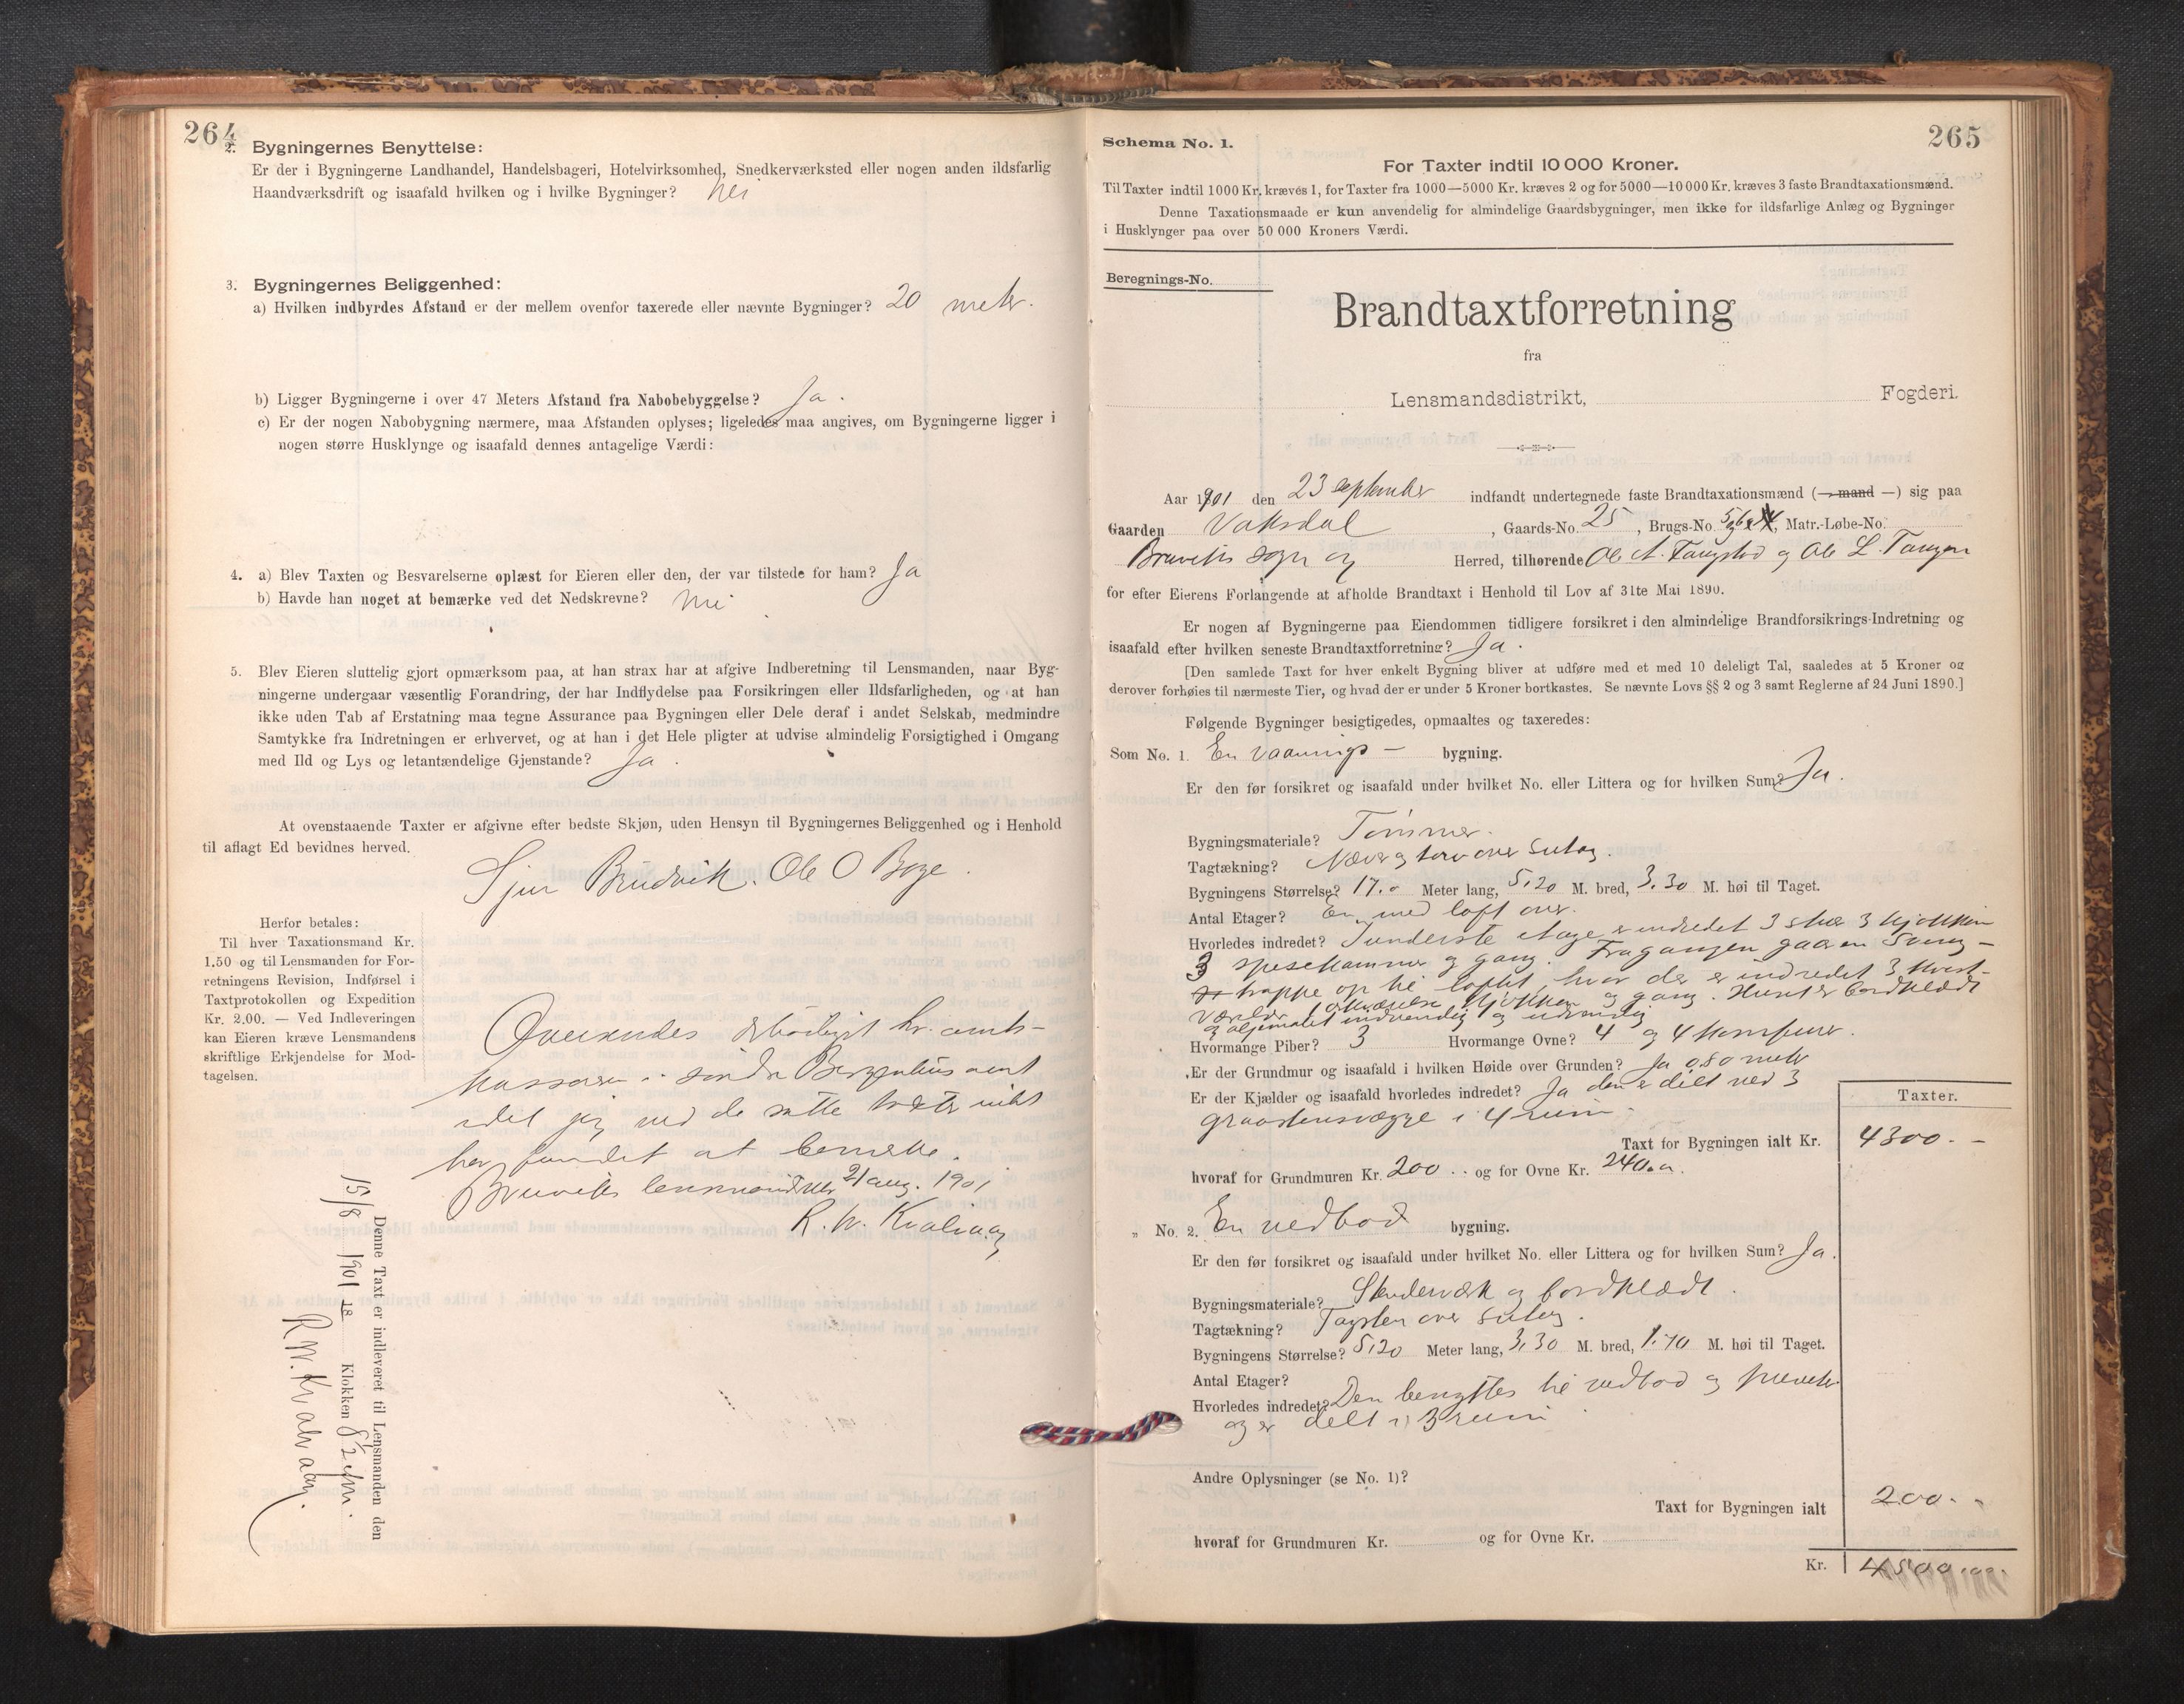 264
2. Bygningernes Benyttelse:
Er der i Bygningerne Landhandel, Handelsbageri, Hotelvirksomhed, Snedkerværksted eller nogen anden ildsfarlig
Haandværksdrift og isaafald hvilken og i hvilke Bygninger? Nei
3. Bygningernes Beliggenhed:
a) Hvilken indbyrdes Afstand er der mellem ovenfor taxerede eller nævnte Bygninger? 20 meter.
b) Ligger Bygningerne i over 47 Meters Afstand fra Nabobebyggelse? Ja.
c) Er der nogen Nabobygning nærmere, maa Afstanden oplyses; ligeledes maa angives, om Bygningerne ligger i
nogen større Husklynge og isaafald dennes antagelige Værdi:
4. a) Blev Taxten og Besvarelserne oplæst for Eieren eller den, der var tilstede for ham? Ja
b) Havde han noget at bemærke ved det Nedskrevne? Nei
5. Blev Eieren sluttelig gjort opmærksom paa, at han strax har at afgive Indberetning til Lensmanden, naar Byg-
ningerne undergaar væsentlig Forandring, der har Indflydelse paa Forsikringen eller Ildsfarligheden, og at han
ikke uden Tab af Erstatning maa tegne Assurance paa Bygningen eller Dele deraf i andet Selskab, medmindre
Samtykke fra Indretningen er erhvervet, og at han i det Hele pligter at udvise almindelig Forsigtighed i Omgang
med Ild og Lys og letantændelige Gjenstande? Ja.
At ovenstaaende Taxter er afgivne efter bedste Skjøn, uden Hensyn til Bygningernes Beliggenhed og i Henhold
til aflagt Ed bevidnes herved.
Sjur Brudvik. Ole O Boge.
Herfor betales:
Til hver Taxationsmand Kr.
1.50 og til Lensmanden for For-
retningens Revision, Indførsel i
Taxtprotokollen og Expedition
Kr. 2.00. — Ved Indleveringen
kan Eieren kræve Lensmandens
skriftlige Erkjendelse for Mod-
tagelsen.
Oversendes ærbødigst hr. amts-
kasseren i søndre Bergenhus amt
idet jeg ved de satte takster intet
har fundet at bemerke.
Bruvik lensmand 21 aug. 1901
R. W. Kvalvaag
Denne Taxt er indleveret til Lensmanden den
15/8 1901 18 Klokken 8 1/2 efm.
R. W. Kvalvaag.
265
Schema No. 1.
For Taxter indtil 10 000 Kroner.
Til Taxter indtil 1000 Kr. kræves 1, for Taxter fra 1000—5000 Kr. kræves 2 og for 5000—10 000 Kr. kræves 3 faste Brandtaxationsmænd.
Denne Taxationsmaade er kun anvendelig for almindelige Gaardsbygninger, men ikke for ildsfarlige Anlæg og Bygninger
i Husklynger paa over 50 000 Kroners Værdi.
Beregnings-No.
Brandtaxtforretning
fra
Lensmandsdistrikt, Fogderi.
Aar 1901 den 23 september indfandt undertegnede faste Brandtaxationsmænd (— mand —) sig paa
Gaarden Vaksdal, Gaards-No. 25, Brugs-No. 5, 6, Matr.-Løbe-No.
Bruviks sogn og Herred, tilhørende Ole A. Tangstad og Ole L. Tangen
for efter Eierens Forlangende at afholde Brandtaxt i Henhold til Lov af 31te Mai 1890.
Er nogen af Bygningerne paa Eiendommen tidligere forsikret i den almindelige Brandforsikrings-Indretning og
isaafald efter hvilken seneste Brandtaxtforretning? Ja.
[Den samlede Taxt for hver enkelt Bygning bliver at udføre med et med 10 deleligt Tal, saaledes at 5 Kroner og
derover forhøies til nærmeste Tier, og hvad der er under 5 Kroner bortkastes. Se nævnte Lovs §§ 2 og 3 samt Reglerne af 24 Juni 1890.]
Følgende Bygninger besigtigedes, opmaaltes og taxeredes:
Som No. 1. En vaanings- bygning.
Er den før forsikret og isaafald under hvilket No. eller Littera og for hvilken Sum? Ja.
Bygningsmateriale? Tømmer.
Tagtækning? Næver og torv over sutag.
Bygningens Størrelse? 17.0 Meter lang, 5.20 M. bred, 3.30 M. høi til Taget.
Antal Etager? En med loft over.
Hvorledes indredet? I underste etage er indredet 3 stuer 3 kjøkken
3 spisekammer og gang. Fra gangen gaar en sving-
trappe op til loftet, hvor der er indredet 3 kvist-
værelser, 1 kjøkken og gang. Huset er bordklædt
og oljemalet indvendig og udvendig
Hvormange Piber? 3 Hvormange Ovne? 4 og 4 komfurer.
Er der Grundmur og isaafald i hvilken Høide over Grunden? Ja 0.80 meter
Er der Kjælder og isaafald hvorledes indredet? Ja den er delt ved 3
graastensvægge i 4 rum.
Taxter.
Taxt for Bygningen ialt Kr. 4300.-
hvoraf for Grundmuren Kr. 200.- og for Ovne Kr. 240.00.
„ No. 2. En vedbod bygning.
Er den før forsikret og isaafald under hvilket No. eller Littera og for hvilken Sum? Ja.
Bygningsmateriale? Stenderværk og bordklædt.
Tagtækning? Tagsten over sutag.
Bygningens Størrelse? 5.20 Meter lang, 3.30 M. bred, 1.70 M. høi til Taget.
Antal Etager?
Hvorledes indredet? Den benyttes til vedbod og priveter
og er delt i 3 rum
Andre Oplysninger (se No. 1)?
Taxt for Bygningen ialt 200.-
hvoraf for Grundmuren Kr. og for Ovne Kr.
Kr. 4500.00.